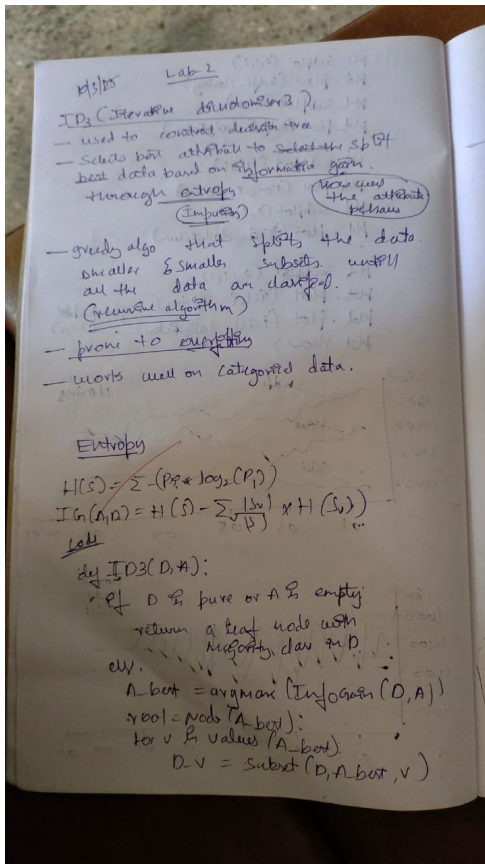 Lab-2
10/3/25
ID3 (Iterative dicudomiser3)
— used to control decision tree
— Selects best attribute to select the split
best data based on information gain
through entropy
(Impurity)
How well
the attribute
behaves
— greedy algo that splits the data
smaller & smaller subsets until
all the data are classified.
(recursive algorithm)
— prone to overfitting
— works well on categorical data.
Entropy
H(S) = Σ -(Pi * log2(Pi))
IG(A,D) = H(S) - Σv |Sv|/|S| × H(Sv))
Code
def ID3(D,A):
if D is pure or A is empty
return a leaf node with
majority class in D
else.
A_best = argmax (InfoGain (D,A))
root = Node (A_best):
for v in values (A_best)
D_v = subset (D, A_best, v)